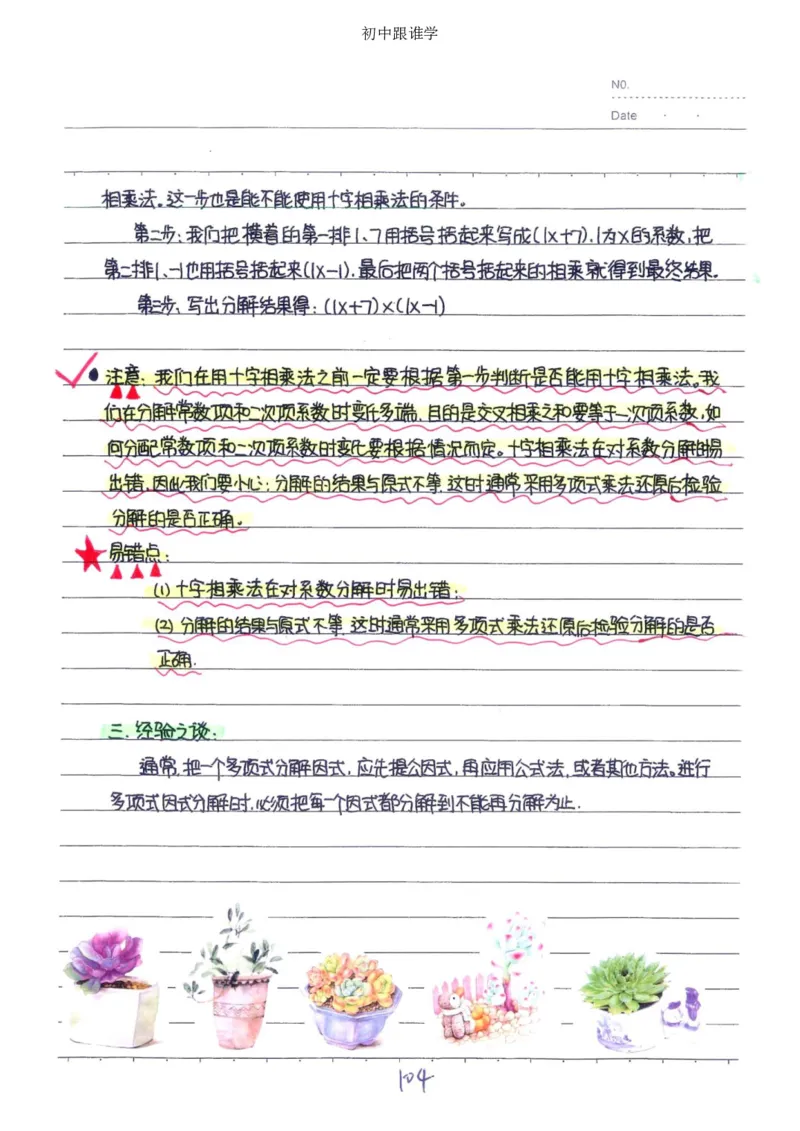 初中跟谁学
NO.
Date · ·
相乘法。这一步也是能不能使用十字相乘法的条件。
第二步:我们把横着的第一排1、7用括号括起来写成(1x+7),1为x的系数,把
第二排1、-1也用括号括起来(1x-1),最后把两个括号括起来的相乘就得到最终结果。
第三步、写出分解结果得:(1x+7)×(1x-1)
注意:我们在用十字相乘法之前一定要根据第一步判断是否能用十字相乘法。我
们在分解常数项和二次项系数时变化多端,目的是交叉相乘之和要等于一次项系数,如
何分配常数项和二次项系数时变化要根据情况而定。十字相乘法在对系数分解时易
出错,因此我们要小心;分解的结果与原式不等,这时通常采用多项式乘法还原后检验
分解的是否正确。
易错点:
(1)十字相乘法在对系数分解时易出错;
(2)分解的结果与原式不等,这时通常采用多项式乘法还原后检验分解的是否
正确.
三.经验之谈:
通常,把一个多项式分解因式,应先提公因式,再应用公式法,或者其他方法。进行
多项式因式分解时,必须把每一个因式都分解到不能再分解为止.
104